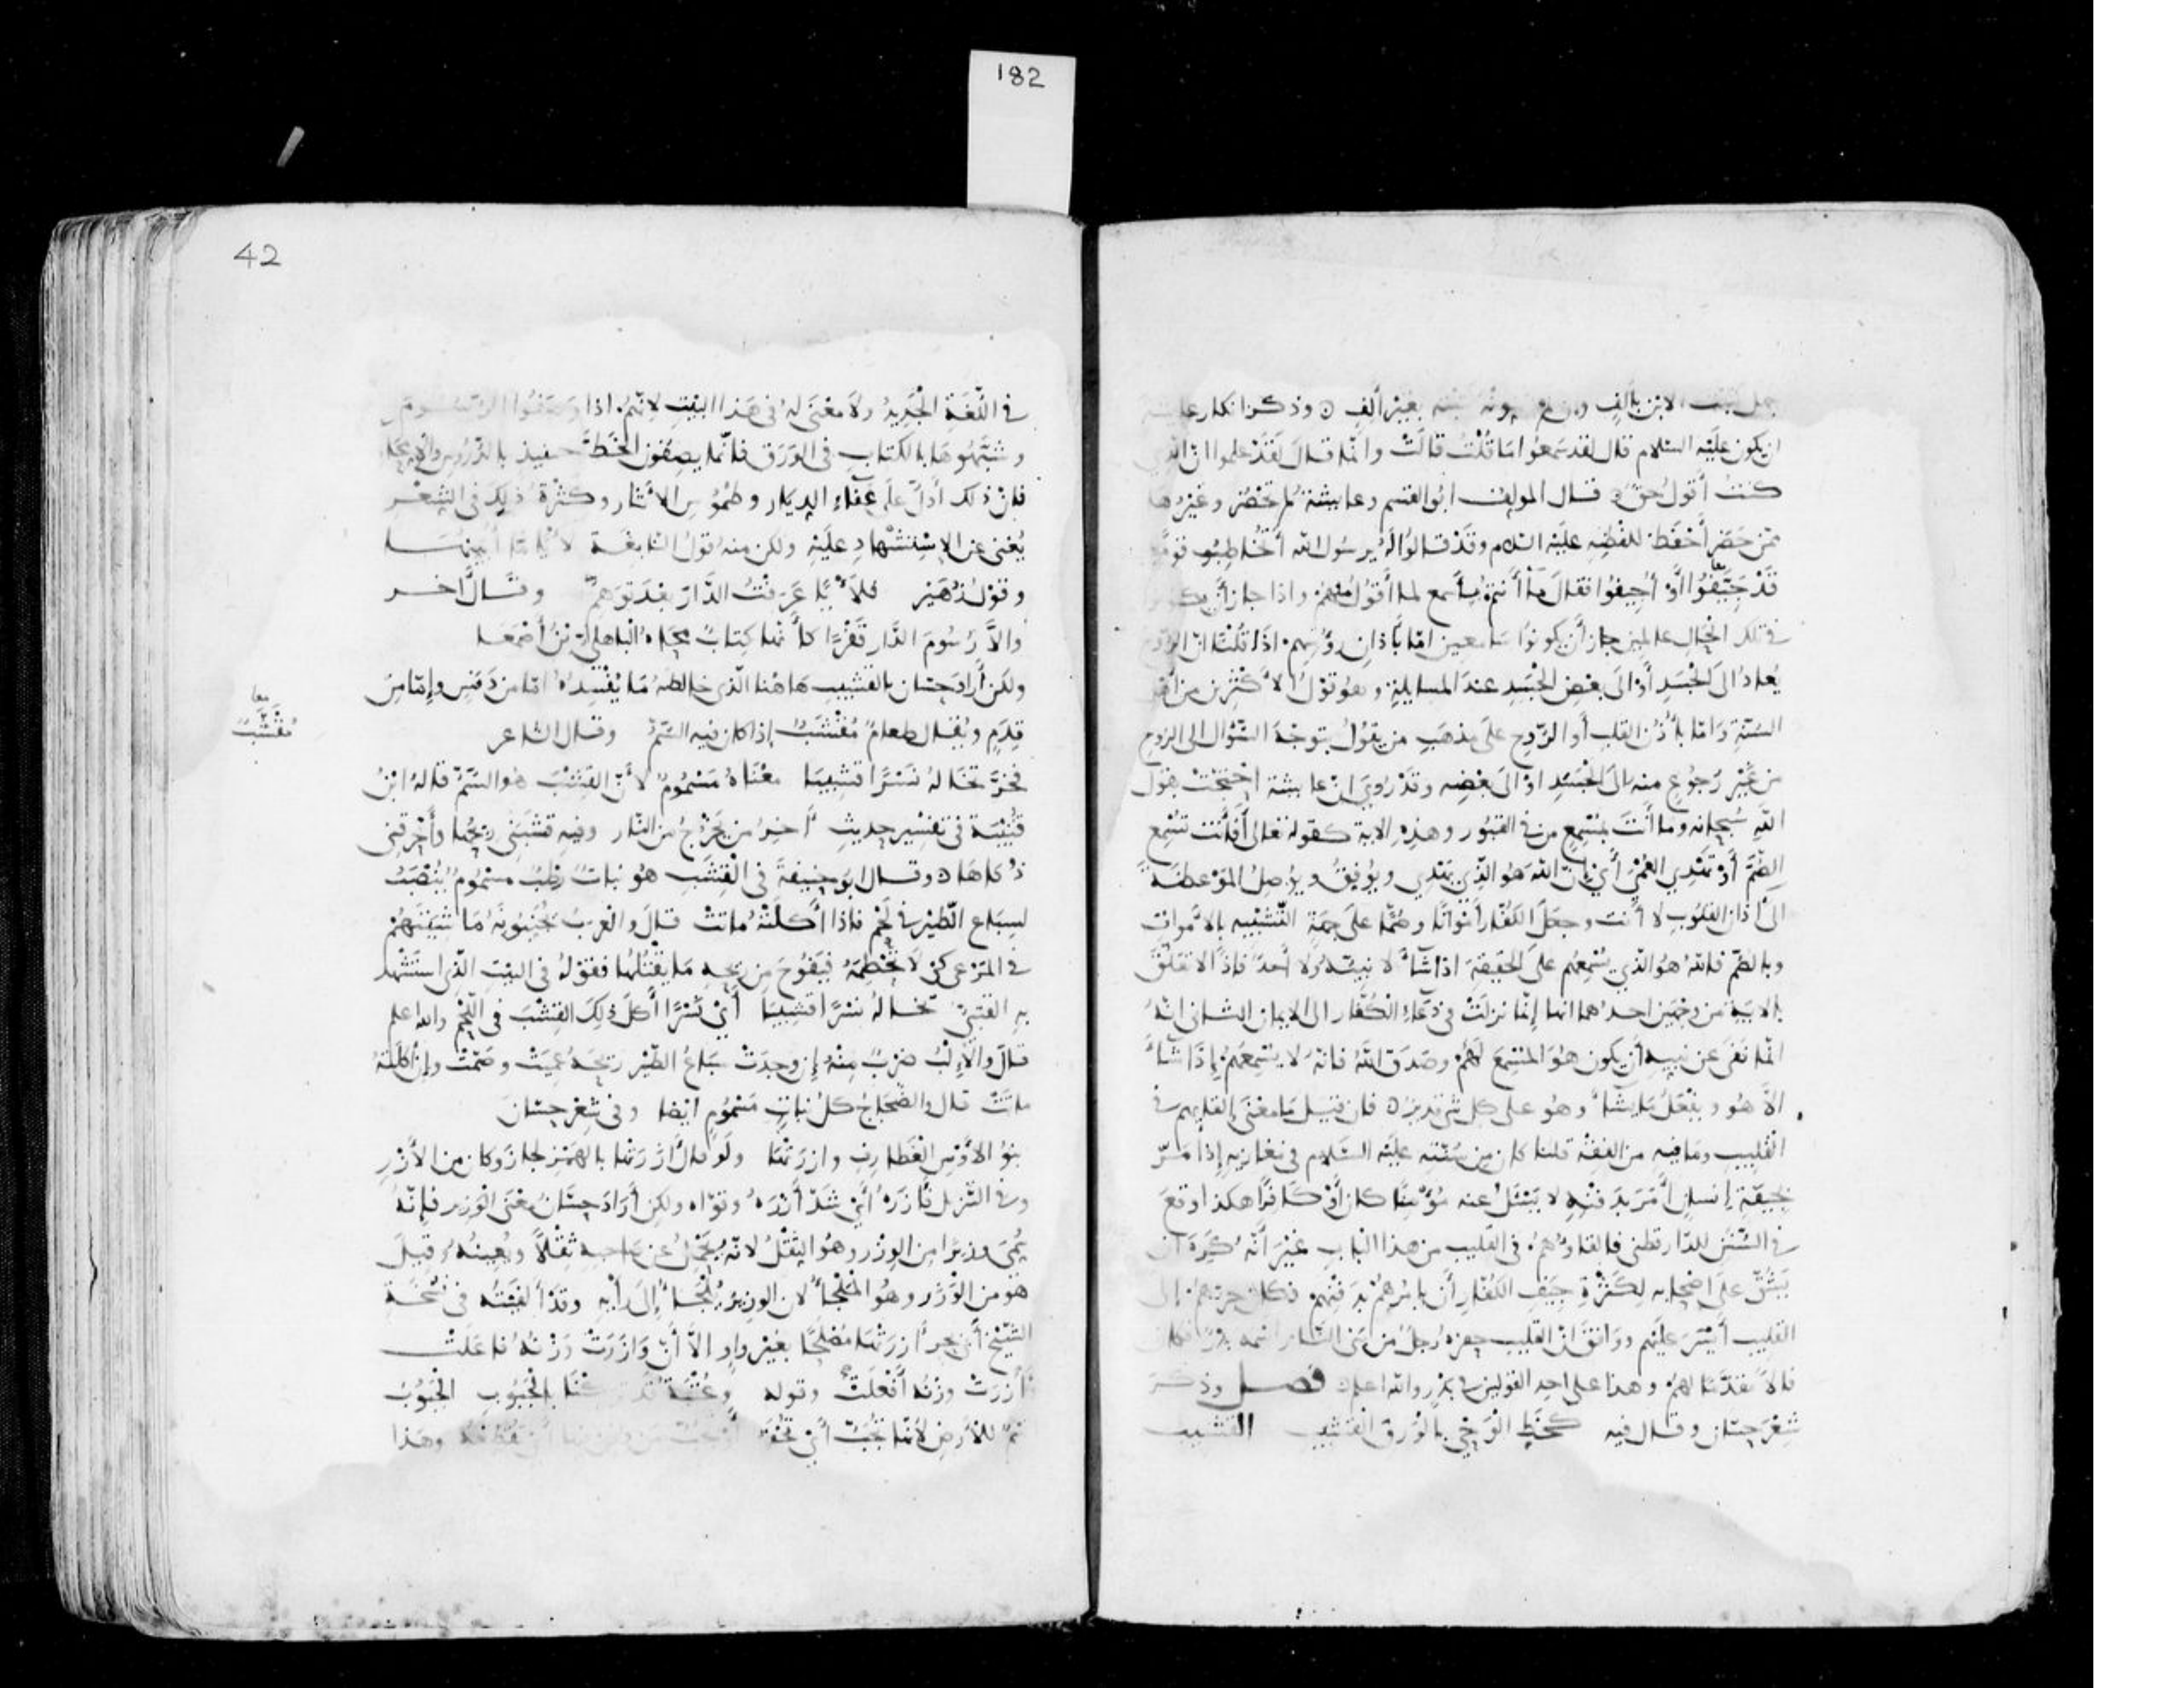 182
ان يكون عليه السلام قال لقد سمعوا ما قلت قالت وانما قال لقد علموا ان الذي
كنت أقول حق قال المولف ابو القسم وعايشة لم تحضر وغيرها
ممن حضر أحفظ للفظه عليه السلام وقد قالوا له يرسول الله أتخاطب قوما
قد جيفوا أو أجيفوا فقال ما أنتم بأسمع لما أقول منهم واذا جاز أن يكونوا
في تلك الحال عالمين جاز أن يكونوا سامعين اما باذان رؤسهم اذا قلنا ان الروح
يعاد الى الجسد أو الى بعض الجسد عند المسايلة وهو قول الأكثرين من أهل
السنة واما بأذن القلب أو الروح على مذهب من يقول بتوجه السؤال الى الروح
من غير رجوع منه الى الجسد او الى بعضه وقد روي ان عايشة احتجت بقول
الله سبحانه وما أنت بمسمع من في القبور وهذه الاية كقوله تعالى أفأنت تسمع
الصم أو تهدي العمي أي ان الله هو الذي يهدي ويوفق ويوصل الموعظة
الى آذان القلوب لا أنت وجعل الكفار أمواتا وصما على جهة التشبيه بالأموات
وبالصم فالله هو الذي يسمعهم على الحقيقة اذا شاء لا نبيه ولا أحد فاذا لا تعلق
بالاية من وجهين احدهما انها إنما نزلت في دعاء الكفار الى الايمان الثاني انه
انما نفى عن نبيه أن يكون هو المسمع لهم وصدق الله فانه لا يسمعهم إذا شاء
الا هو ويفعل ما يشاء وهو على كل شي قدير فان قيل ما معنى إلقايهم في
القليب وما فيه من الفقه قلنا كان من سنته عليه السلام في مغازيه إذا مر
بجيفة إنسان أمر بدفنه لا يسئل عنه مؤمنا كان أو كافرا هكذا وقع
في السنن للدارقطني فالقاؤهم في القليب من هذا الباب غير أنه كره ان
يشق على اصحابه لكثرة جيف الكفار أن يامرهم بدفنهم فكان جرهم إلى
القليب أيسر عليهم ووافق ان القليب حفره رجل من بني النار اسمه بدر فكان
فالا مقدما لهم وهذا على احد القولين في بدر والله اعلم فصل وذكر
شعر حسان وقال فيه كخط الوحي بالورق القشيب القشيب
42
في اللغة الجديد ولا معنى له في هذا البيت لانهم اذا وصفوا الرسوم
وشبهوها بالكتاب في الورق فانما يصفون الخط حينيذ بالدروس والامحاء
فان ذلك أدل على عفاء الديار وطموس الاثار وكثرة ذلك في الشعر
يغني عن الاستشهاد عليه ولكن منه قول النابغة لأيا ما أبينها
وقول زهير فلأيا عرفت الدار بعد توهم وقال اخر
والا رسوم الدار قفرا كأنها كتاب محاه الباهلي بن أصمعا
ولكن أراد حسان بالقشيب هاهنا الذي خالطه ما يفسده اما من دنس وإما من
قدم ويقال طعام مقشب إذا كان فيه السم وقال الشاعر
معا
مقشب
فخر تخاله نسرا قشيبا معناه مسموم لأن القشب هو السم قاله ابن
قتيبة في تفسير حديث آخر من يخرج من النار وفيه قشبني ريحها وأحرقني
ذكاها وقال ابو حنيفة في القشب هو نبات رطب مسموم ينصب
لسباع الطير في لحم فاذا أكلته ماتت قال والعرب يجنبونه ماشيتهم
في المرعى كي لا تحطمه فيفوح من ريحه ما يقتلها فقوله في البيت الذي استشهد
به القتبي تخاله نسرا قشيبا أي نسرا أكل ذلك القشب في اللحم والله اعلم
قال والألب ضرب منه إن وجدت سباع الطير ريحه عميت وصمت وإن أكلته
ماتت قال والضجاج كل نبات مسموم ايضا وفي شعر حسان
بنو الاوس الغطارف وازرتها ولو قال آزرتها بالهمز لجاز وكان من الأزر
وفي التنزيل فآزره أي شد أزره وقواه ولكن أراد حسان معنى الوزير فإنه
سمي وزيرا من الوزر وهو الثقل لانه يحمل عن صاحبه ثقلا ويعينه وقيل
هو من الوزر وهو الملجأ لان الوزير يلجأ إلى رأيه وقد ألفيته في نسخة
الشيخ أبي بحر آزرتها مصلحا بغير واو الا أن وازرت وزنه فاعلت
وآزرت وزنه أفعلت وقوله وعتبة قد تركنا بالجبوب الجبوب